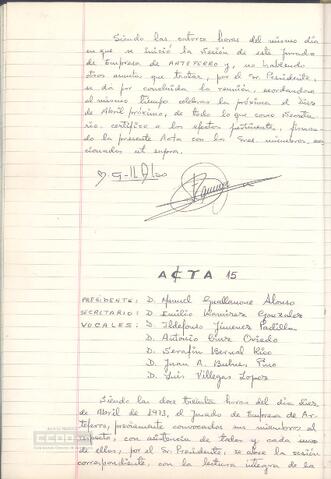 Siendo las catorce horas del mismo día
en que se inició la sesión de este Jurado
de Empresa de ARTEFERRO y, no habiendo
otros asuntos que tratar, por el Sr. Presidente,
se da por concluida la reunión, acordandose
al mismo tiempo celebrar la próxima el diez
de Abril próximo, de todo lo que como Secreta-
rio, certifico a los efectos pertinente, firman-
do la presente Acta con los Sres. miembros, rela-
cionados ut supra.
ACTA 15
PRESIDENTE: D. Manuel Alonso
SECRETARIO: D. Emilio Ramirez Gonzalez
VOCALES: D. Ildefonso Jimenez Padilla
D. Antonio Cruz Oviedo
D. Serafín Bernal Rico
D. Juan A. Pino
D. Luis Villegas Lopez
Siendo las doce treinta horas del día diez
de Abril de 1973, el Jurado de Empresa de Ar-
teferro, previamente convocados sus miembros al
respecto, con asistencia de todos y cada uno
de ellos, por el Sr. Presidente, se abre la sesión
correspondiente, con la lectura integra de la